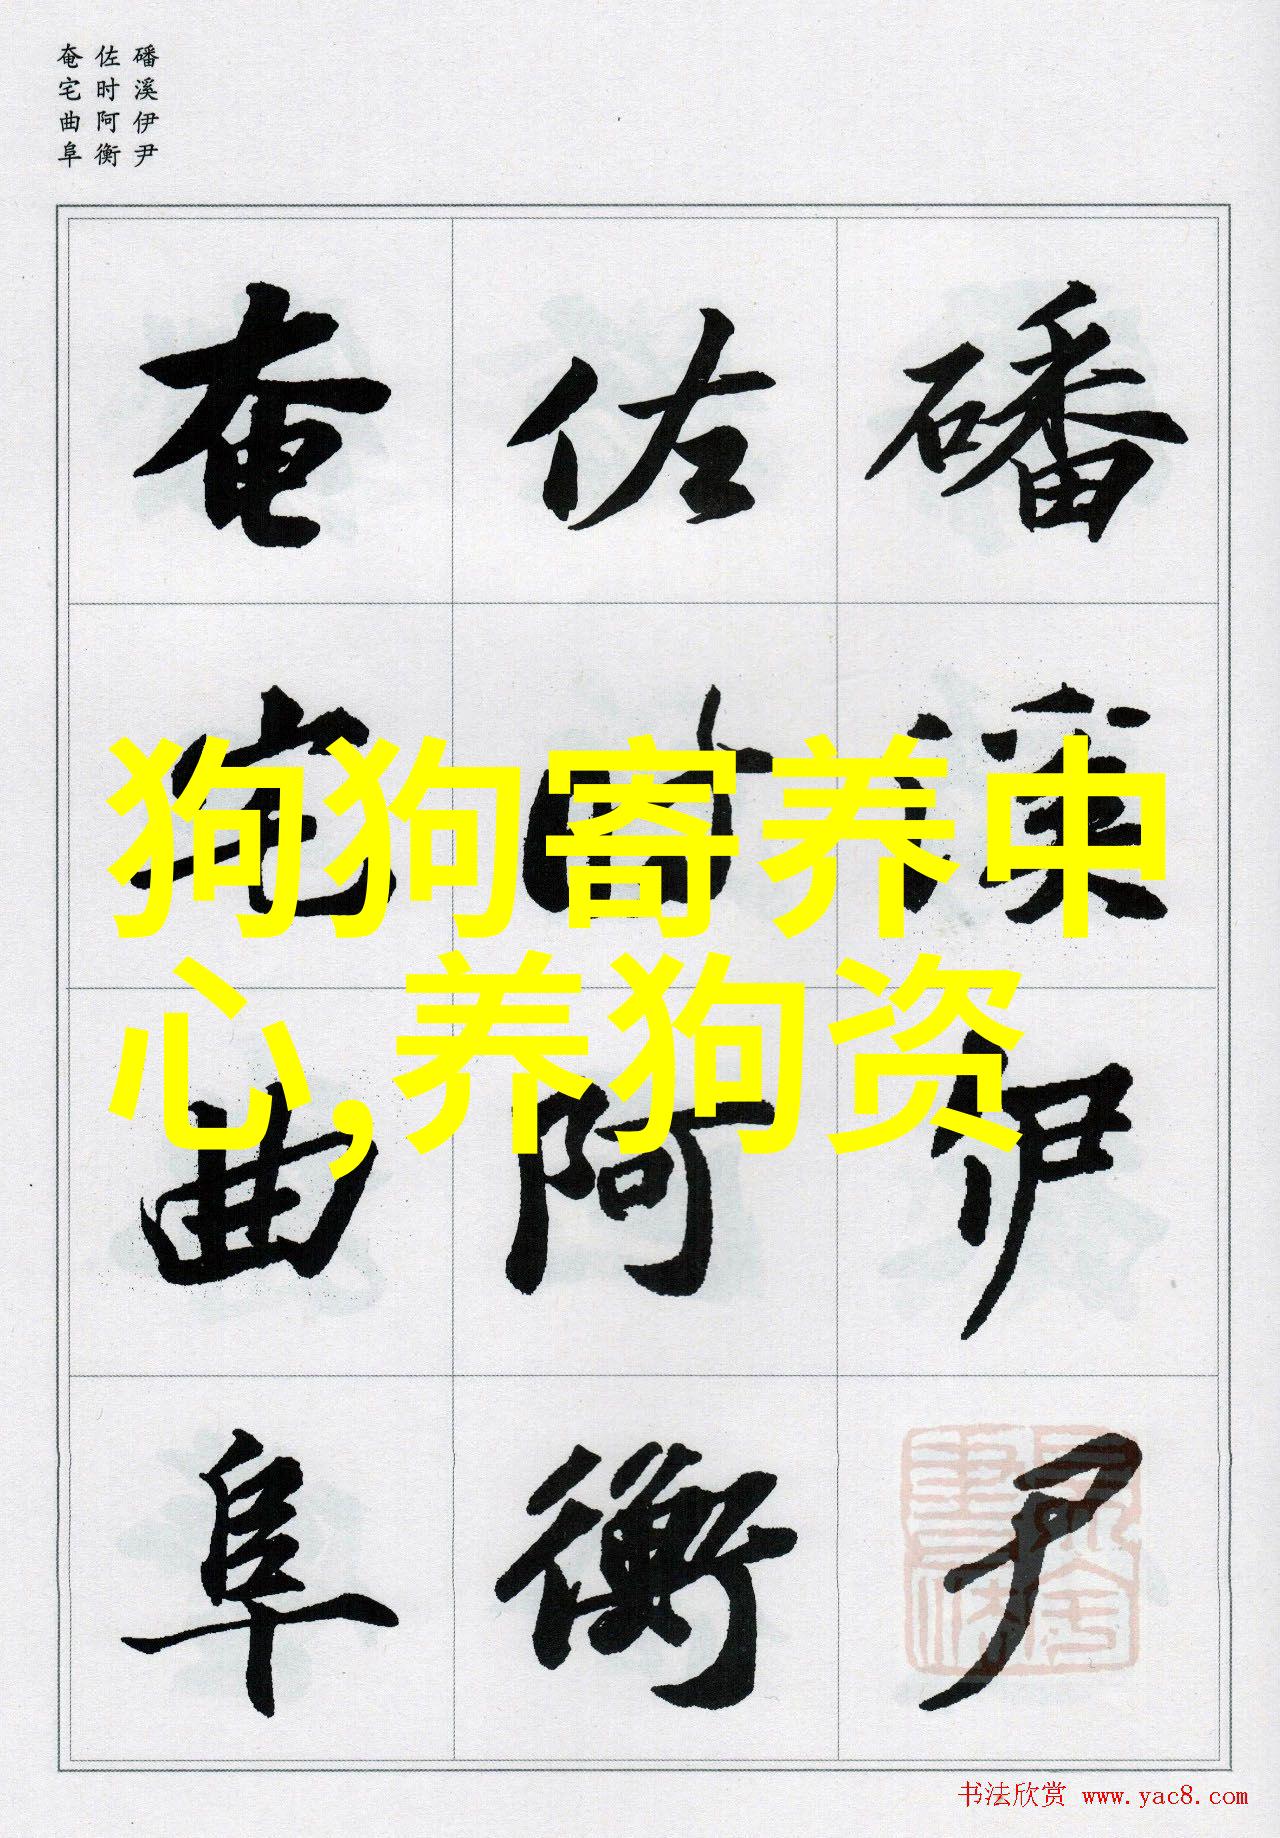 磻溪伊尹
佐时阿衡
奄宅曲阜
磻溪伊尹
佐时阿衡
奄宅曲阜
狗狗寄养中
心,养狗资
书法欣赏 www.yac8.com